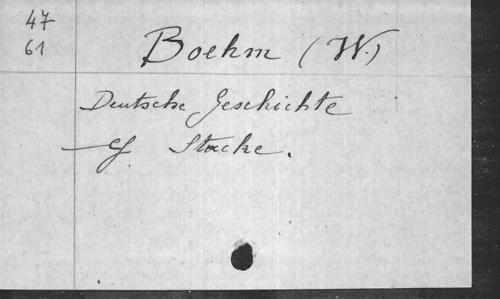 47
61
Boehm (W.)
Deutsche Geschichte
— cf Stacke.